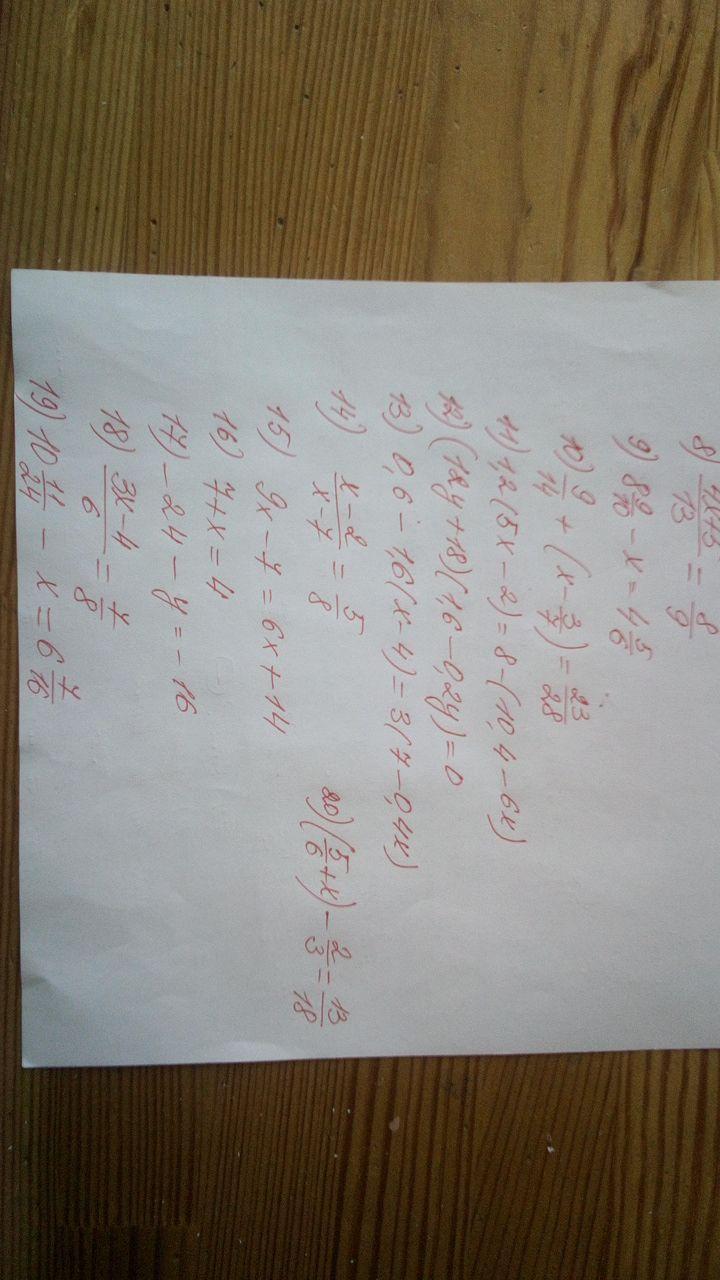 8) x+5/13 = 8/9
9) 8 9/10 - x = 4 5/6
10) 9/14 + (x - 3/7) = 23/28
11) 1,2(5x-2)=8-(10,4-6x)
12) (12y+18)(1,6-0,2y)=0
13) 0,6-1,6(x-4)=3(7-0,4x)
14) x-2/x-7 = 5/8
15) 9x-7=6x+14
16) 7+x=4
17) -24-y=-16
18) 3x-4/6 = 7/8
19) 10 11/24 - x = 6 7/16
20) (5/6+x) - 2/3 = 13/18